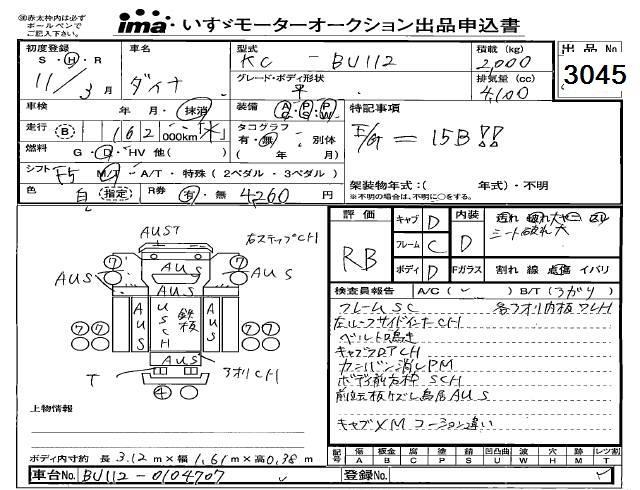 ※赤太枠内は必ず
ボールペンで
ご記入下さい。
ima いすゞモーターオークション出品申込書
初度登録 S・H・R 11/3月
車名 ダイナ
型式 KC - BU112
積載 (kg) 2,000
出品No 3045
グレード・ボディ形状 平
排気量 (cc) 4,100
車検 年 月・抹消
装備 AC・PS・PW
特記事項
走行 B 162 000km
タコグラフ 有・無 別体 ( 年 月)
E/G = 15B!!
燃料 G・D・HV 他( )
シフト F5 M/T・A/T・特殊(2ペダル・3ペダル)
架装物年式:( 年式)・不明
※不明の場合は、不明に○をする。
色 白 指定 R券 有・無 4260 円
評価 RB
キャブ D 内装 D
フレーム C
ボディ D Fガラス 割れ 線 点傷 イバリ
シート破れ大
検査員報告 A/C( ) B/T(うがり)
フレームSC
ベルト鳴き
キャブフロアCH
カンバン消しPM
ボディ前方枠SCH
キャブメM コーション違い
右ステップCH
AUST
AUS
AUS
AUS
AUS
USCH
鉄板
AUS
AUS
T
アオリCH
⑦
⑦
⑦⑦
⑦⑦
④
上物情報
ボディ内寸約 長 3.12 m×幅 1.61 m×高 0.38 m
記号 傷A 板金B 腐C 塗P 錆S 凹凸曲U 波W 穴H 跡M レツ割T
車台No. BU112-0104707
登録No.